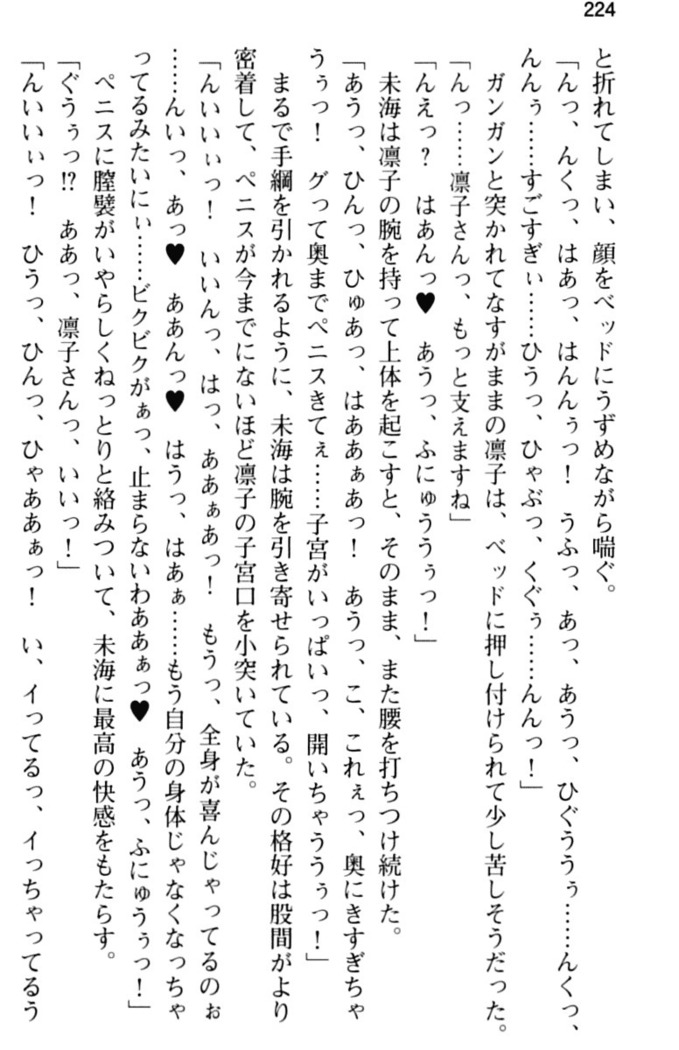 224
と折れてしまい、顔をベッドにうずめながら喘ぐ。
「んっ、んくっ、はあっ、はんんぅっ！　うふっ、あっ、あうっ、ひぐううぅ……んくっ、
んんぅ……すごすぎぃ……ひうっ、ひゃぶっ、くぐぅ……んんっ！」
ガンガンと突かれてなすがままの凛子は、ベッドに押し付けられて少し苦しそうだった。
「んっ……凛子さんっ、もっと支えますね」
「んえっ？　はあんっ♥　あうっ、ふにゅううぅっ！」
未海は凛子の腕を持って上体を起こすと、そのまま、また腰を打ちつけ続けた。
「あうっ、ひんっ、ひゅあっ、はああぁあっ！　あうっ、こ、これぇっ、奥にきすぎちゃ
うぅっ！　グって奥までペニスきてぇ……子宮がいっぱいっ、開いちゃううぅっ！」
まるで手綱を引かれるように、未海は腕を引き寄せられている。その格好は股間がより
密着して、ペニスが今までにないほど凛子の子宮口を小突いていた。
「んいいぃっ！　いいんっ、はっ、ああぁあっ！　もうっ、全身が喜んじゃってるのぉ
……んいっ、あっ♥　ああんっ♥　はうっ、はあぁ……もう自分の身体じゃなくなっちゃ
ってるみたいにぃ……ビクビクがぁっ、止まらないわああぁっ♥　あうっ、ふにゅうぅっ！」
ペニスに膣襞がいやらしくねっとりと絡みついて、未海に最高の快感をもたらす。
「ぐうぅっ!?　ああっ、凛子さんっ、いいっ！」
「んいいぃっ！　ひうっ、ひんっ、ひゃああぁっ！　い、イってるっ、イっちゃってるう